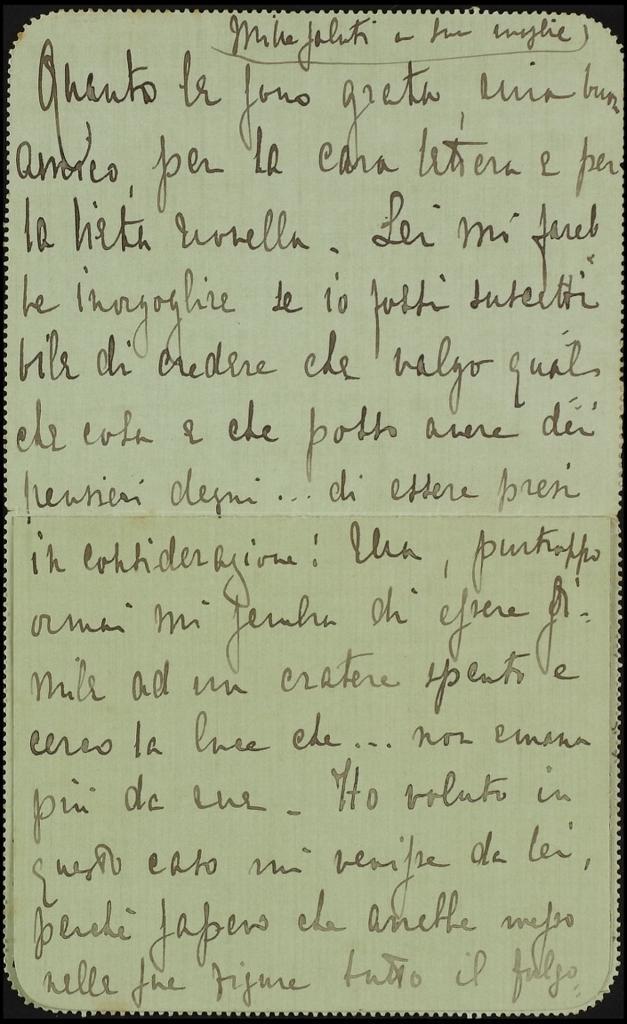 Mille saluti a sua moglie
Quanto le sono grata, mio buon
amico, per la cara lettera e per
la lieta novella. Lei mi fareb
be inorgoglire se io fossi suscetti
bile di credere che valgo qual-
che cosa e che posso avere dei
pensieri degni... di essere presi
in considerazione! Ma, purtroppo
ormai mi sembra di essere si-
mile ad un cratere spento e
cerco la luce che... non emana
più da me - Ho voluto in
questo caso mi venisse da lei,
perché sapevo che avrebbe messo
nelle sue figure tutto il fulgo